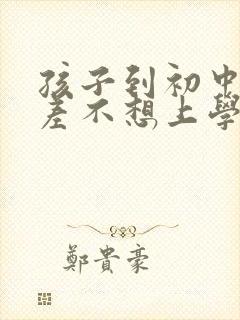 孩子到初中
差不想上學
鄭貴豪